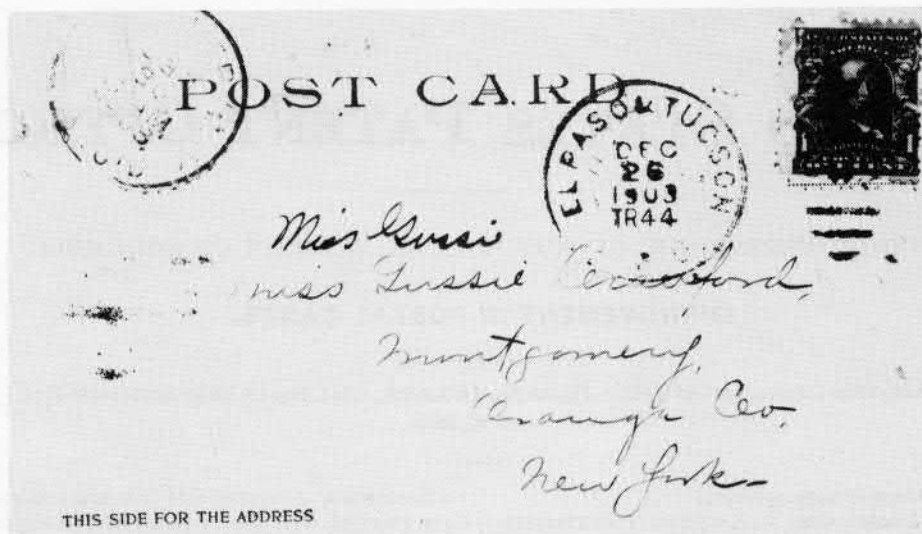 POST CARD
EL PASO & TUCSON
DEC
26
1903
TR44
Miss Gussie
Miss Gussie Crawford,
Montgomery,
Orange Co.
New York
THIS SIDE FOR THE ADDRESS